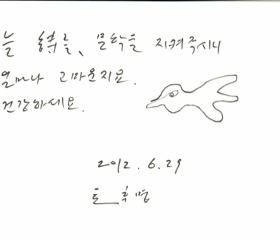 늘 문학을 지켜주시니
얼마나 고마운지요.
건강하세요.
2012. 6. 29